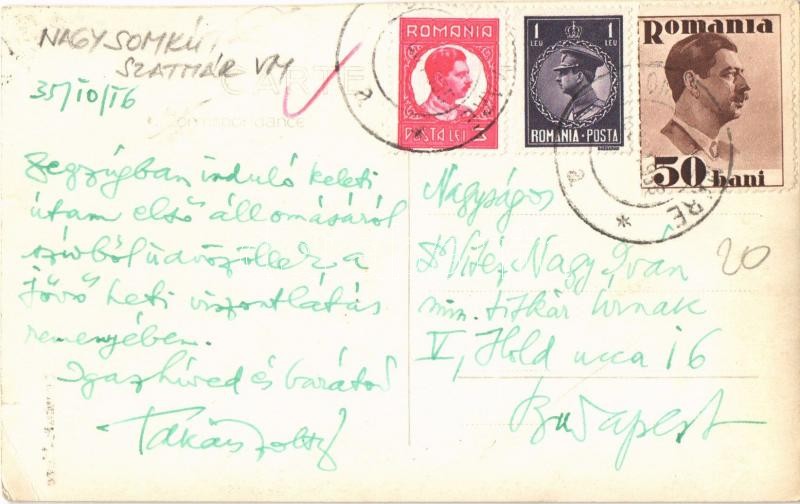 NAGYSOMKÚT
SZATMÁR VM
35/IV/16
CARTE
Correspondance
Zegzugban induló keleti
útam első állomásáról
szívből üdvözöllek, a
jövő heti viszontlátás
reményében.
Igaz híved és barátod
Takács Zoltán
ROMANIA
POSTA LEI 3
1 LEU
1 LEU
ROMANIA · POSTA
Romania
50 bani
Nagyságos
Dr Vitéz Nagy Iván
min. titkár Úrnak
V, Hold ucca 16
Budapest
20